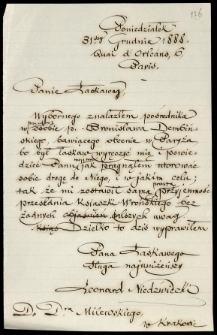 136
Poniedziałek
31go Grudnia 1888.
Quai d'Orléans, 6
Paris.
Panie Łaskawy,
Wybornego znalazłem pośrednika
w osobie p. Bronisława Dembiń-
skiego, bawiącego obecnie w Paryżu
to był łaskaw wyręczyć mię i powie-
dzieć Panu, jak pragnąłem utorować
sobie drogę do Niego, i w jakim celu;
tak że mi zostawił samą przyjemność
przesłania Książek Wrońskiego bez
żadnych objaśnień uwag
Dziełko to dziś wyprawiłem
Pana Łaskawego
sługa najniższy
Leonard Niedźwiecki
Do Dra Milewskiego,
w Krakowie